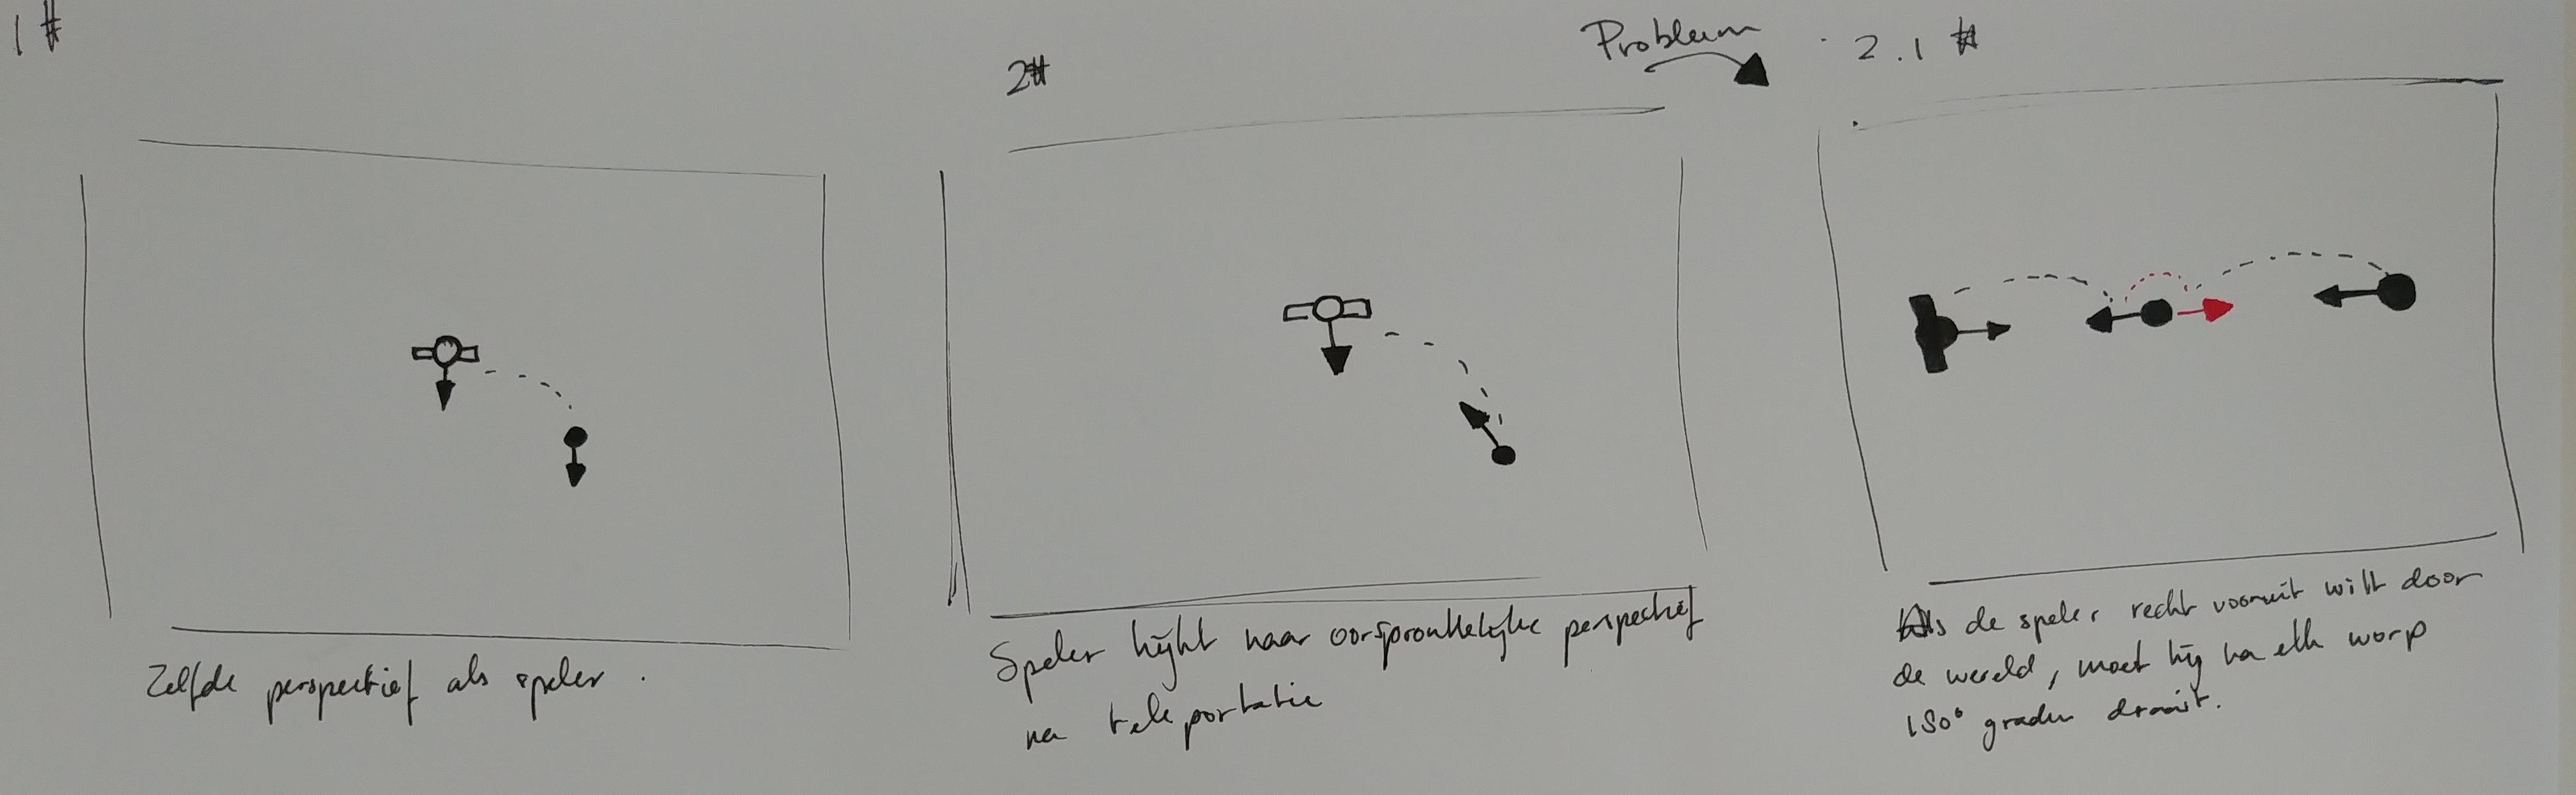 1#
2#
Probleem
2.1 #
Zelfde perspectief als speler.
Speler kijkt naar oorspronkelijke perspectief
na teleportatie
Als de speler recht vooruit wilt door
de wereld, moet hij na elk worp
180° graden draait.